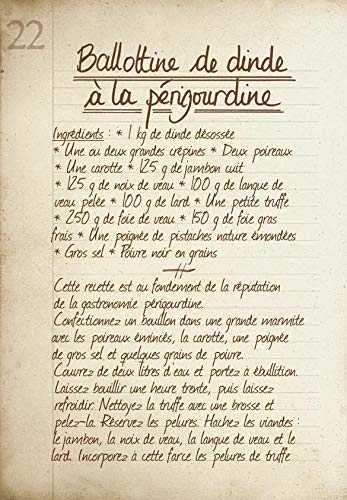 22
Ballottine de dinde
à la périgourdine
Ingrédients : * 1 kg de dinde désossée
* Une ou deux grandes crépines * Deux poireaux
* Une carotte * 125 g de jambon cuit
* 125 g de noix de veau * 100 g de langue de
veau pelée * 100 g de lard * Une petite truffe
* 250 g de foie de veau * 150 g de foie gras
frais * Une poignée de pistaches nature émondées
* Gros sel * Poivre noir en grains
Cette recette est au fondement de la réputation
de la gastronomie périgourdine.
Confectionnez un bouillon dans une grande marmite
avec les poireaux émincés, la carotte, une poignée
de gros sel et quelques grains de poivre.
Couvrez de deux litres d'eau et portez à ébullition.
Laissez bouillir une heure trente, puis laissez
refroidir. Nettoyez la truffe avec une brosse et
pelez-la. Réservez les pelures. Hachez les viandes :
le jambon, la noix de veau, la langue de veau et le
lard. Incorporez à cette farce les pelures de truffe